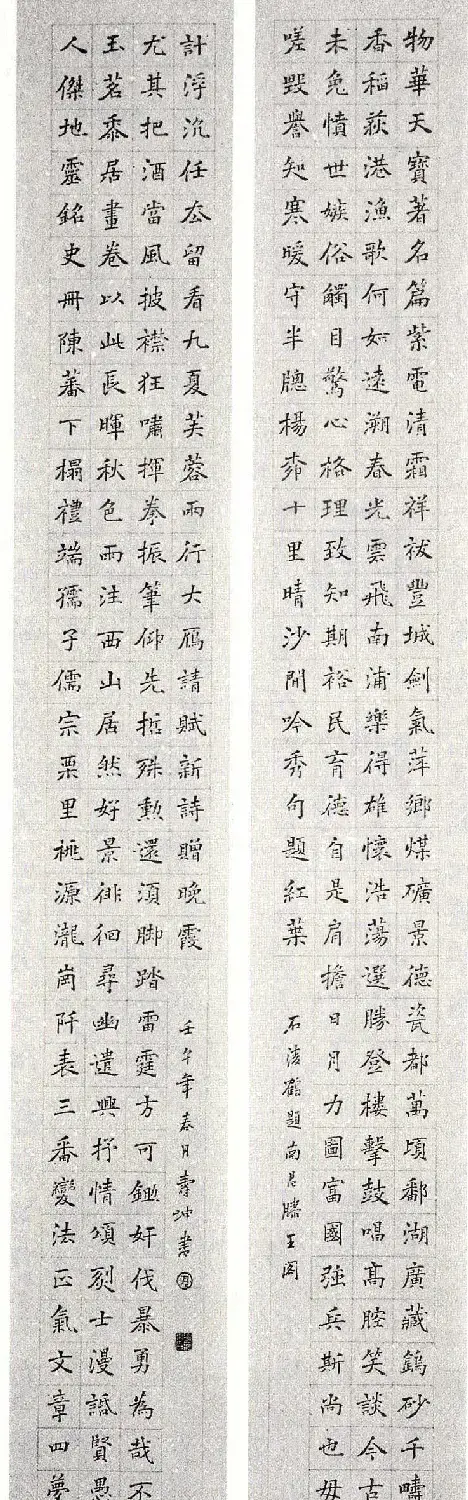 物華天寶著名篇紫電清霜祥祓豐城劍氣萍鄉煤礦景德瓷都萬頃鄱湖廣藏鎢砂千疇
香稻荻港漁歌何如遠溯春光雲飛南浦樂得雄懷浩蕩選勝登樓擊鼓唱高腔笑談今古
未免憤世嫉俗觸目驚心格理致知期裕民育德自是肩擔日月力圖富國強兵斯尚也毋
嗟毀譽知寒暖守半牕楊柳十里晴沙閒吟秀句題紅葉
石凌鶴題南昌滕王閣
人傑地靈銘史冊陳蕃下榻禮端孺子儒宗栗里桃源瀧岡阡表三番變法正氣文章四夢
玉茗黍居畫卷以此長暉秋色雨注西山居然好景徘徊尋幽遣興抒情頌烈士漫詆賢愚
尤其把酒當風披襟狂嘯揮拳振筆仰先哲殊勳還須脚踏雷霆方可鋤奸伐暴勇為哉不
計浮沉任去留看九夏芙蓉雨行大雁請賦新詩贈晚霞
壬午年春月壽坤書